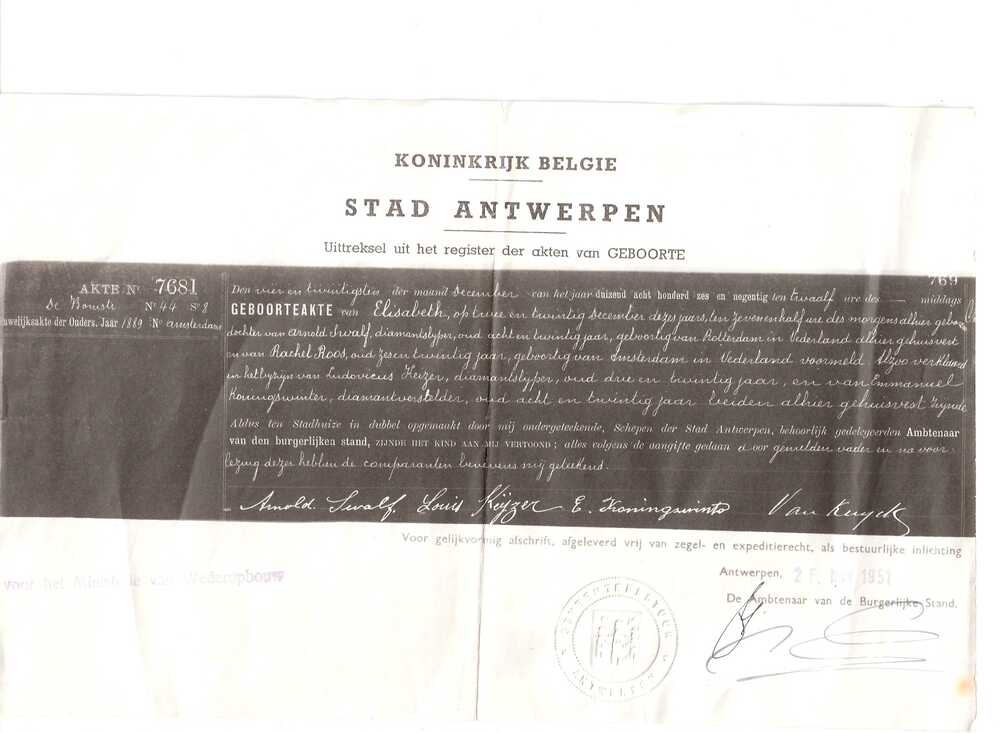 KONINKRIJK BELGIE
STAD ANTWERPEN
Uittreksel uit het register der akten van GEBOORTE
AKTE No 7681
769
N° 44 S° 8
uwelijksakte der Ouders. Jaar 1869 No Amsterdam
Den vier en twintigsten der maand December van het jaar duizend acht honderd zes en negentig ten twaalf ure des — middags
GEBOORTEAKTE van Elisabeth, op twee en twintig December dezes jaars, ten zeven en half ure des morgens alhier geboren
dochter van Arnold Swalf, diamantslyper, oud acht en twintig jaar, geboortig van Rotterdam in Nederland alhier gehuisvest
en van Rachel Roos, oud zes en twintig jaar, geboortig van Amsterdam in Nederland voormeld Alzoo verklaard
in het byzyn van Ludovicus Keizer, diamantslyper, oud drie en twintig jaar, en van Emmanuel
Koningswinter, diamantversteller, oud acht en twintig jaar beiden alhier gehuisvest Zynde
Aldus ten Stadhuize in dubbel opgemaakt door mij ondergeteekende, Schepen der Stad Antwerpen, behoorlijk gedelegeerden Ambtenaar
van den burgerlijken stand, ZIJNDE HET KIND AAN MIJ VERTOOND; alles volgens de aangifte gedaan door gemelden vader en na voor-
lezing dezer hebben de comparanten benevens mij geteekend.
Arnold Swalf. Louis Keijzer E. Koningswinter Van Kuyck
Voor gelijkvormig afschrift, afgeleverd vrij van zegel- en expeditierecht, als bestuurlijke inlichting
voor het Ministerie van Wederopbouw
Antwerpen, 1951
De Ambtenaar van de Burgerlijke Stand.
ANTWERPEN